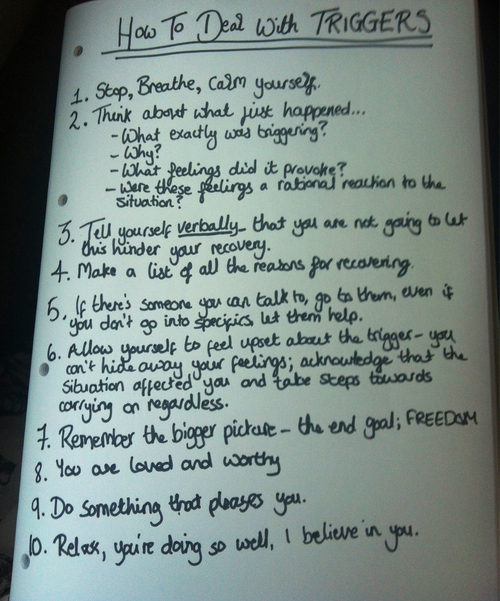 How To Deal With TRIGGERS
1. Stop, Breathe, Calm yourself.
2. Think about what just happened...
- What exactly was triggering?
- Why?
- What feelings did it provoke?
- Were these feelings a rational reaction to the
situation?
3. Tell yourself verbally that you are not going to let
this hinder your recovery.
4. Make a list of all the reasons for recovering.
5. If there's someone you can talk to, go to them, even if
you don't go into specifics, let them help.
6. Allow yourself to feel upset about the trigger - you
can't hide away your feelings; acknowledge that the
situation affected you and take steps towards
carrying on regardless.
7. Remember the bigger picture - the end goal; FREEDOM
8. You are loved and worthy
9. Do something that pleases you.
10. Relax, you're doing so well, I believe in you.